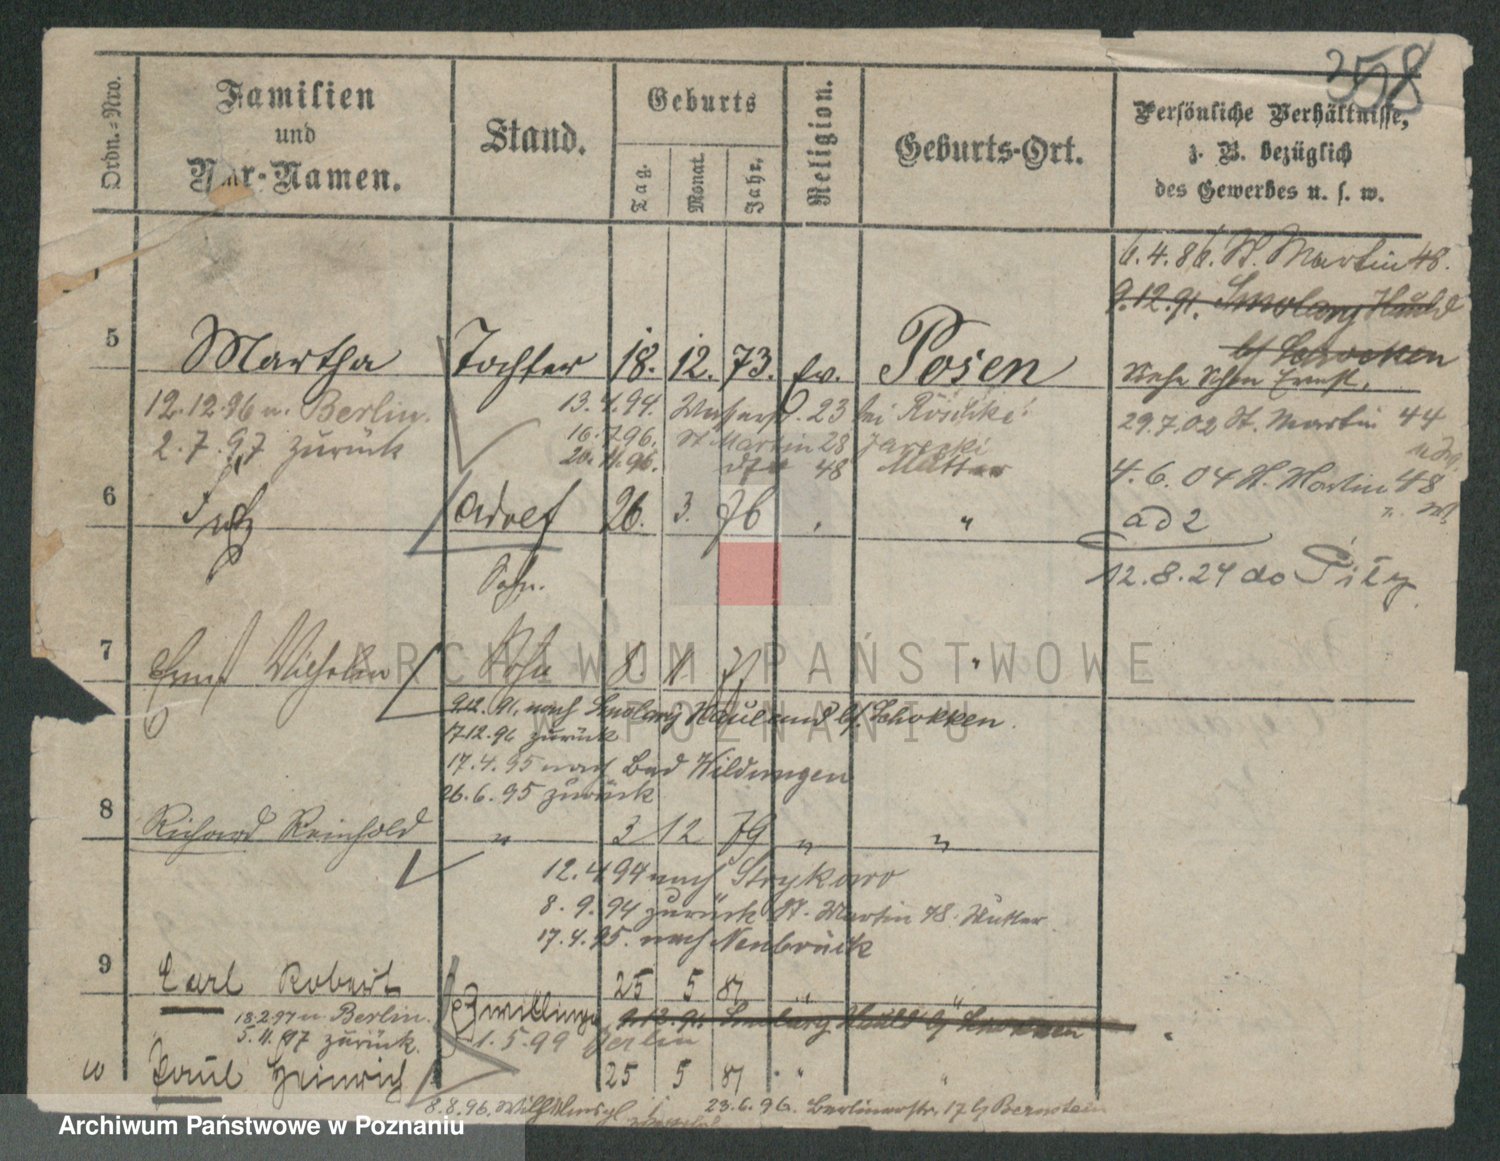 358
Ordn.-Nro.
Familien
und
Vor-Namen.
Stand.
Geburts
Tag.
Monat.
Jahr.
Religion.
Geburts-Ort.
Persönliche Verhältnisse,
z. B. bezüglich
des Gewerbes u. s. w.
6.4.86. St. Martin 48.
9.12.91. Smolary Hauld
b/ Schocken
5 Martha Tochter 18. 12. 73. Ev. Posen
Siehe Schon Ernst.
12.12.96 n. Berlin.
13.4.94. 23 bei
29.7.02 St. Martin 44
2.7.97 zurück
16.7.96. St Martin 28 Jarecki
20.11.96. 48 Mutter
4.6.04 St. Martin 48
6 Adolf 26. 3. 76 "
ad 2
Sohn.
12.8.24 do Piły
7 Ernst Wilhelm Sohn 8 1 "
9.12.91. nach Smolary Hauland b/ Schokken.
17.12.96 zurück
17.4.95 nach Bad Wildungen
26.6.95 zurück
8 Richard Reinhold " 3 12 79 " "
12.4.94 nach Strykowo
8.9.94 zurück St. Martin 48. Mutter
17.4.95. nach Neubrück
9 Carl Robert 25 5 87 " "
Zwillinge
9.12.91 Smolary Hauld b/ Schokken
18.2.97 n Berlin.
5.11.97 zurück.
1.5.99 Berlin
10 Paul Heinrich 25 5 87 " "
8.8.96. 23.6.96. Berlinerstr. 17 b/ Bernstein
ARCHIWUM PAŃSTWOWE
W POZNANIU
Archiwum Państwowe w Poznaniu